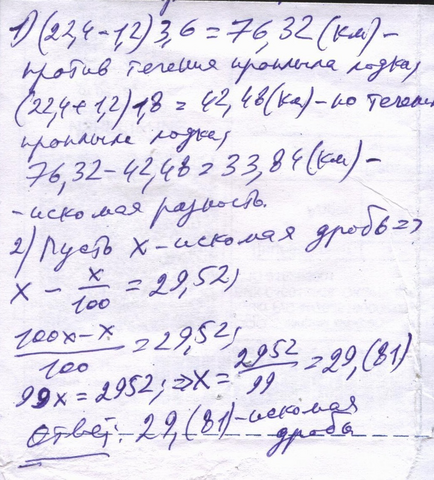 1) (22,4 - 1,2) 3,6 = 76,32 (км) -
против течения проплыла лодка,
(22,4 + 1,2) 1,8 = 42,48 (км) - по течен
проплыла лодка,
76,32 - 42,48 = 33,84 (км) -
- искомая разность.
2) Пусть x - искомая дробь =>
x - x/100 = 29,52;
(100x - x)/100 = 29,52;
99x = 2952; => x = 2952/99 = 29,(81)
Ответ: 29,(81) - искомая
дробь